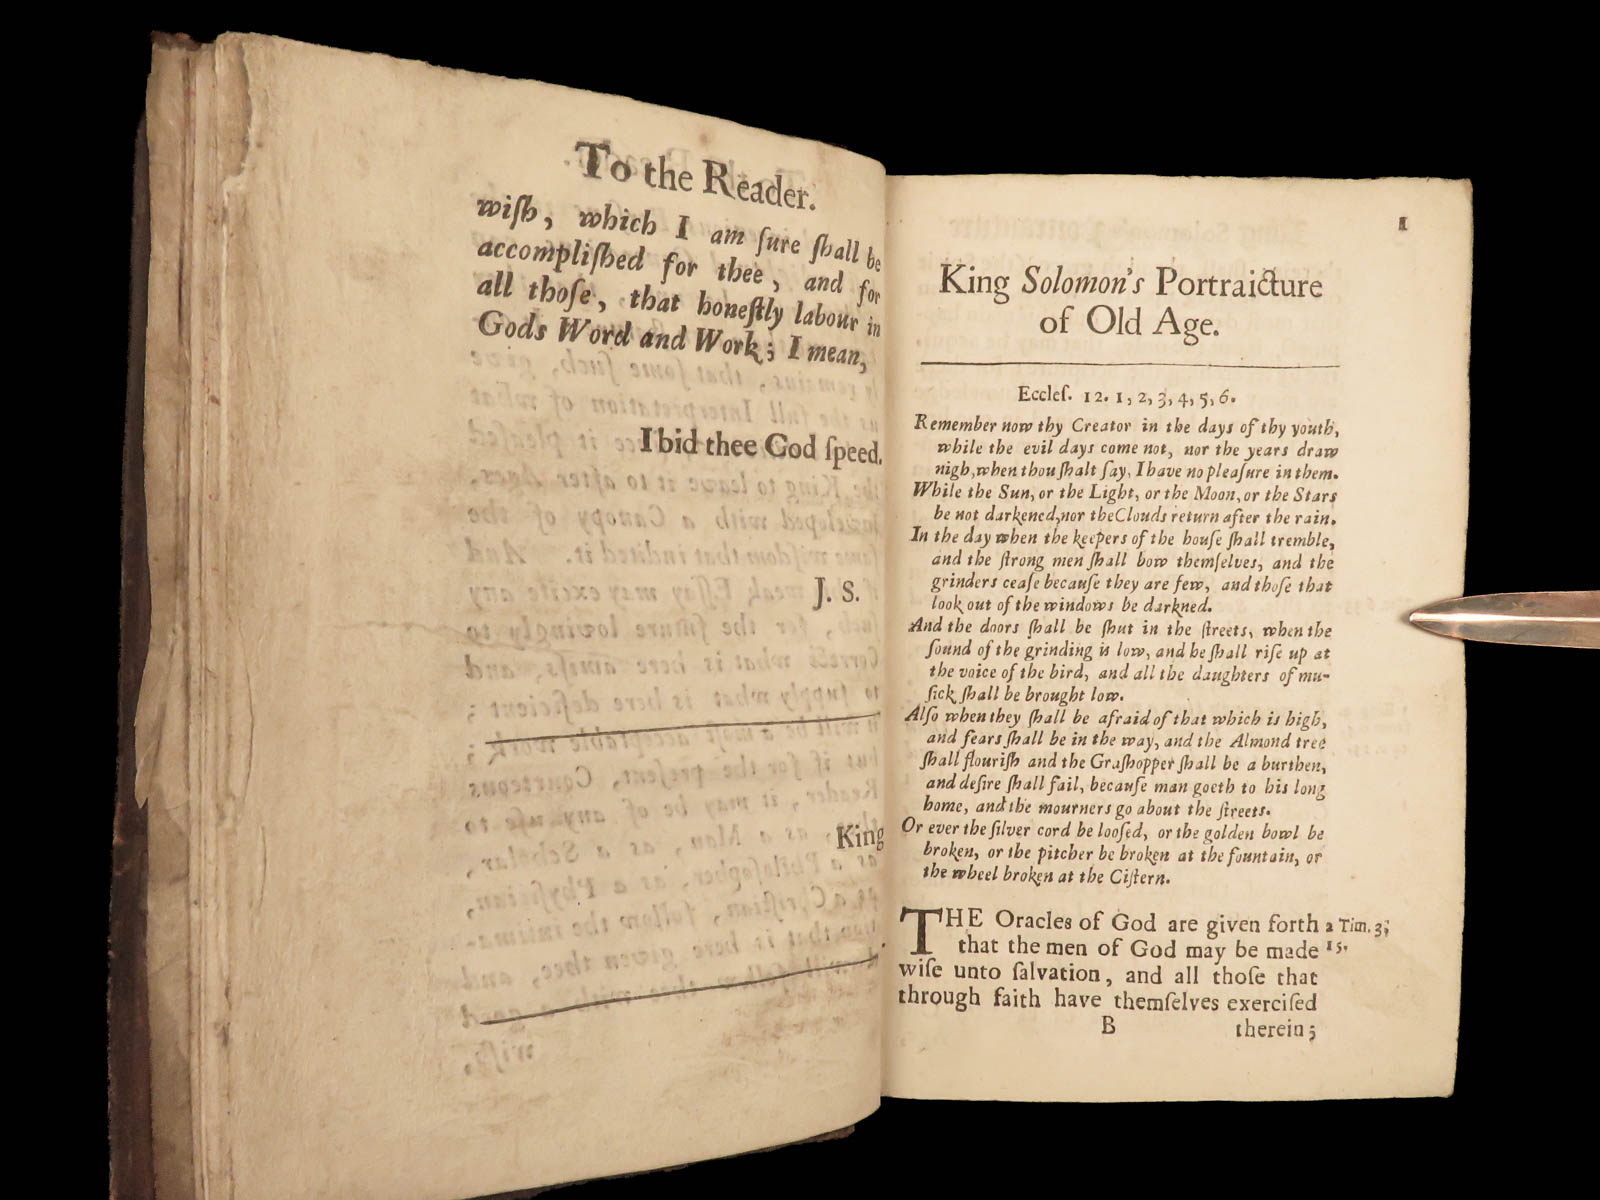 To the Reader.
wiſh, which I am ſure ſhall be
accompliſhed for thee, and for
all thoſe, that honeſtly labour in
Gods Word and Work; I mean,
I bid thee God ſpeed.
J. S.
King
1
King Solomon's Portraicture
of Old Age.
Eccleſ. 12. 1, 2, 3, 4, 5, 6.
Remember now thy Creator in the days of thy youth,
while the evil days come not, nor the years draw
nigh, when thou ſhalt ſay, I have no pleaſure in them.
While the Sun, or the Light, or the Moon, or the Stars
be not darkened, nor the Clouds return after the rain.
In the day when the keepers of the houſe ſhall tremble,
and the ſtrong men ſhall bow themſelves, and the
grinders ceaſe becauſe they are few, and thoſe that
look out of the windows be darkned.
And the doors ſhall be ſhut in the ſtreets, when the
ſound of the grinding is low, and he ſhall riſe up at
the voice of the bird, and all the daughters of mu-
ſick ſhall be brought low.
Alſo when they ſhall be afraid of that which is high,
and fears ſhall be in the way, and the Almond tree
ſhall flouriſh and the Graſhopper ſhall be a burthen,
and deſire ſhall fail, becauſe man goeth to his long
home, and the mourners go about the ſtreets.
Or ever the ſilver cord be looſed, or the golden bowl be
broken, or the pitcher be broken at the fountain, or
the wheel broken at the Ciſtern.
THE Oracles of God are given forth
2 Tim. 3;
that the men of God may be made
15.
wiſe unto ſalvation, and all thoſe that
through faith have themſelves exerciſed
B
therein;